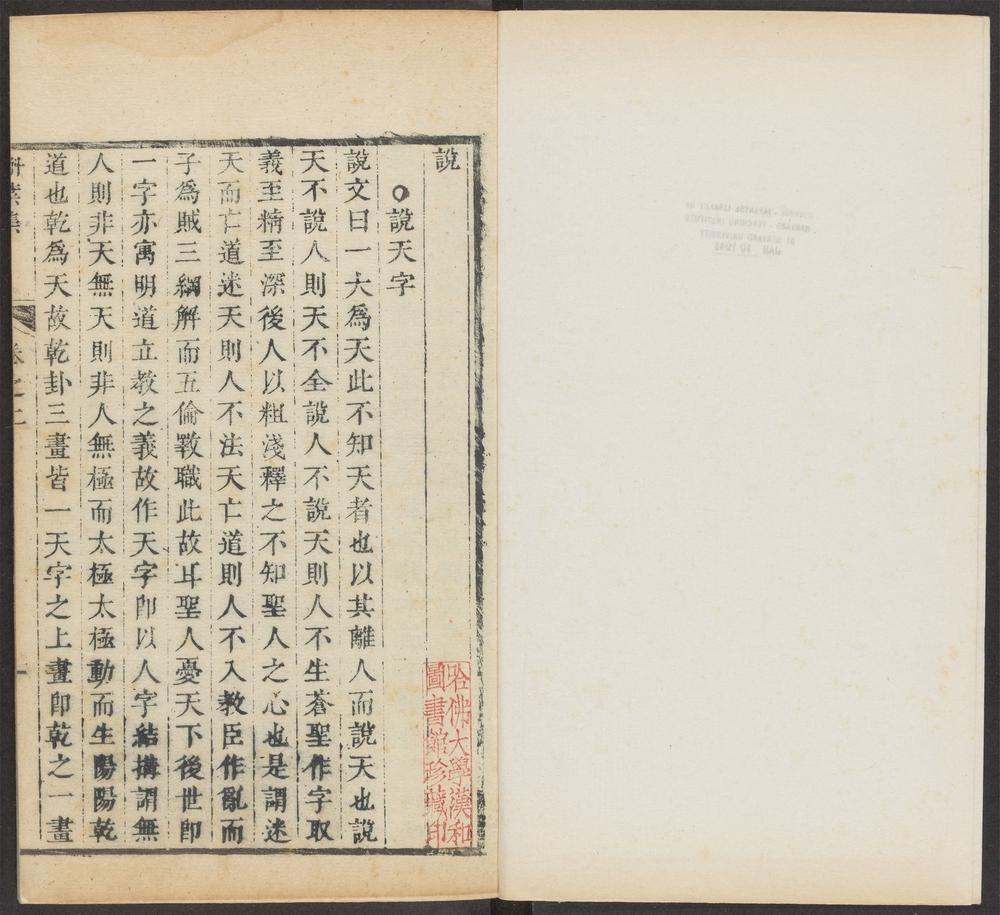 說
說天字
說文曰一大爲天此不知天者也以其離人而說天也說
天不說人則天不全說人不說天則人不生蒼聖作字取
義至精至深後人以粗淺釋之不知聖人之心也是謂迷
天而亡道迷天則人不法天亡道則人不入教臣作亂而
子爲賊三綱解而五倫斁職此故耳聖人憂天下後世卽
一字亦寓明道立教之義故作天字卽以人字結搆謂無
人則非天無天則非人無極而太極太極動而生陽陽乾
道也乾爲天故乾卦三畫皆一天字之上畫卽乾之一畫
卷之二
一
哈佛大學漢和
圖書館珍藏印